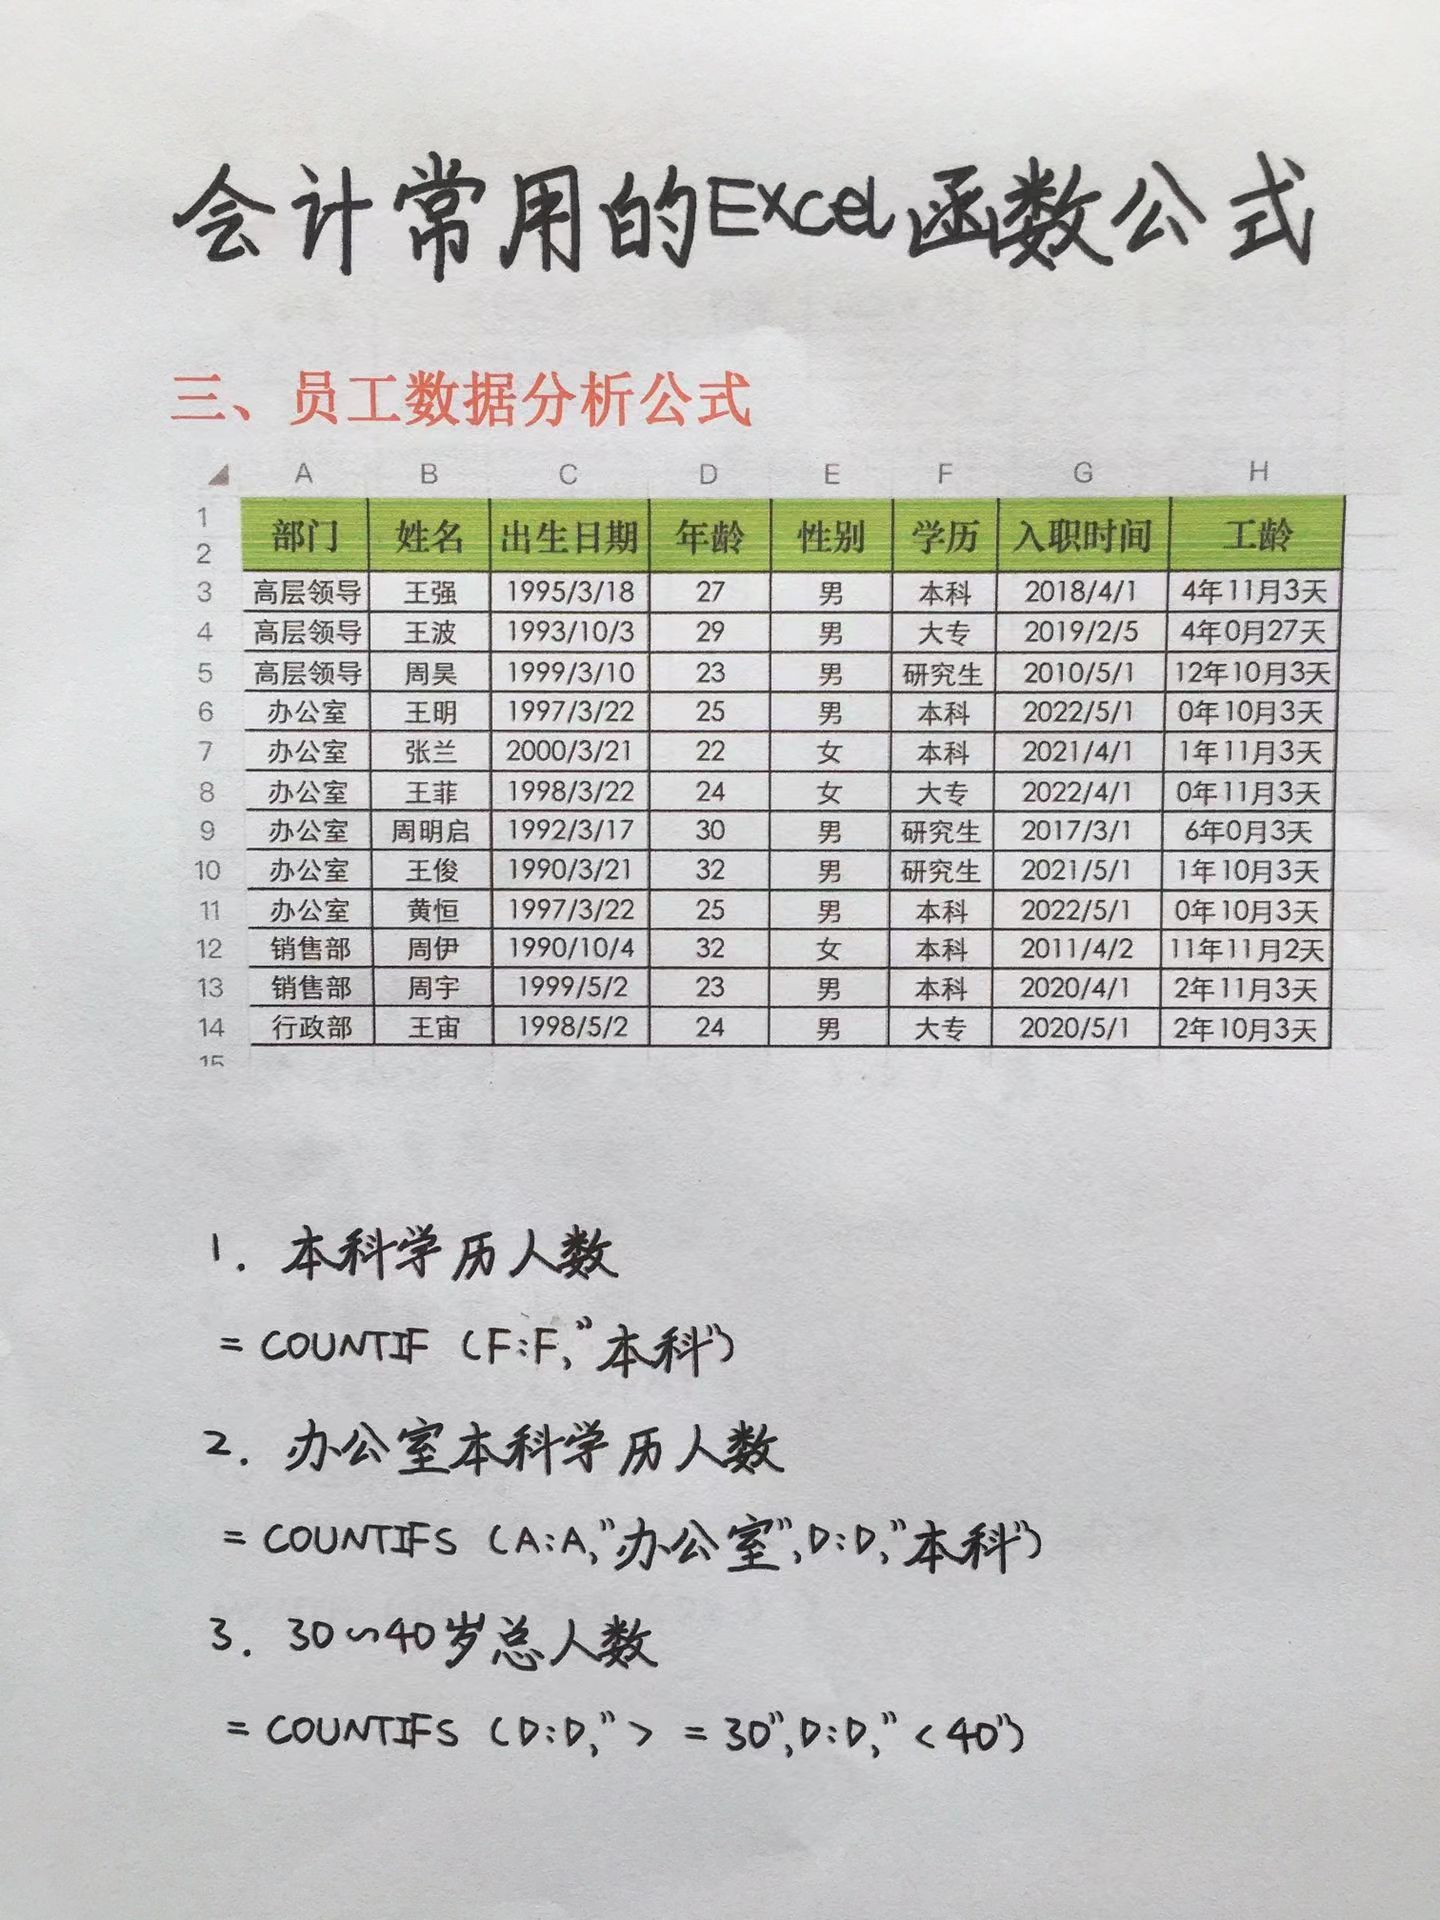 会计常用的Excel函数公式
三、员工数据分析公式
A B C D E F G H
1
2
部门 姓名 出生日期 年龄 性别 学历 入职时间 工龄
3 高层领导 王强 1995/3/18 27 男 本科 2018/4/1 4年11月3天
4 高层领导 王波 1993/10/3 29 男 大专 2019/2/5 4年0月27天
5 高层领导 周昊 1999/3/10 23 男 研究生 2010/5/1 12年10月3天
6 办公室 王明 1997/3/22 25 男 本科 2022/5/1 0年10月3天
7 办公室 张兰 2000/3/21 22 女 本科 2021/4/1 1年11月3天
8 办公室 王菲 1998/3/22 24 女 大专 2022/4/1 0年11月3天
9 办公室 周明启 1992/3/17 30 男 研究生 2017/3/1 6年0月3天
10 办公室 王俊 1990/3/21 32 男 研究生 2021/5/1 1年10月3天
11 办公室 黄恒 1997/3/22 25 男 本科 2022/5/1 0年10月3天
12 销售部 周伊 1990/10/4 32 女 本科 2011/4/2 11年11月2天
13 销售部 周宇 1999/5/2 23 男 本科 2020/4/1 2年11月3天
14 行政部 王宙 1998/5/2 24 男 大专 2020/5/1 2年10月3天
15
1. 本科学历人数
= COUNTIF (F:F,"本科")
2. 办公室本科学历人数
= COUNTIFS (A:A,"办公室",D:D,"本科")
3. 30~40岁总人数
= COUNTIFS (D:D,"> =30",D:D,"<40")